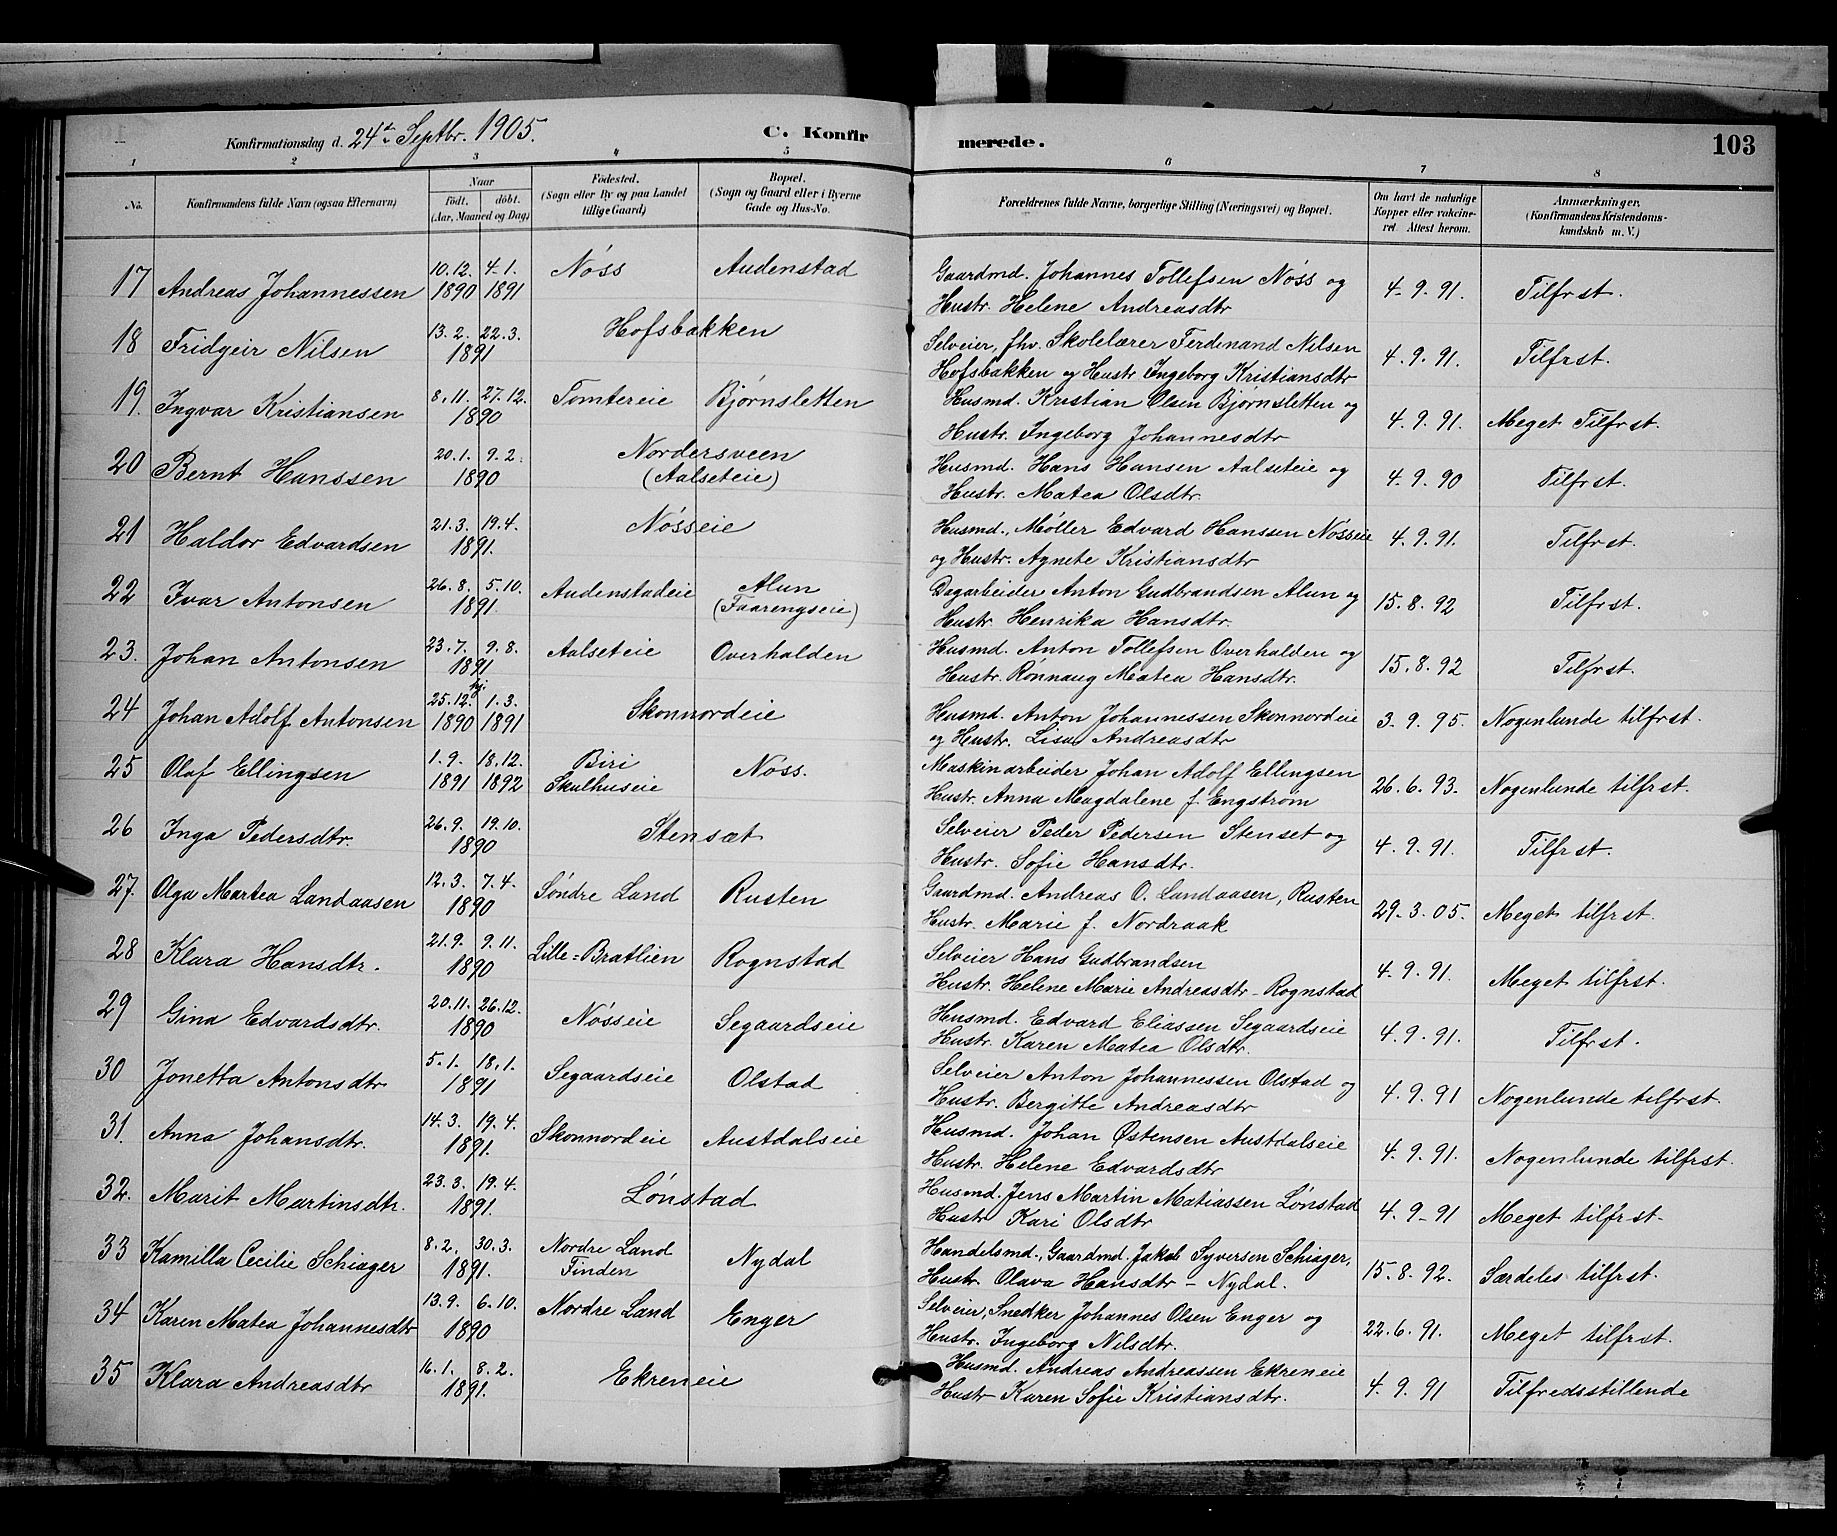 Konfirmationsdag d. 24de Septbr. 1905. C. Konfir merede. 103
1 2 3 4 5 6 7 8
No. Konfirmandens fulde Navn (ogsaa Efternavn) Naar født. døbt. (Aar, Maaned og Dag) Fødested. (Sogn eller By og paa Landet tillige Gaard) Bopæl. (Sogn og Gaard eller i Byerne Gade og Hus-No. Forældrenes fulde Navne, borgerlige Stilling (Næringsvei) og Bopæl. Om havt de naturlige Kopper eller vakcineret. Attest herom. Anmærkninger. (Konfirmandens Kristendomskundskab m. V.)
17 Andreas Johannessen 10.12. 1890 4.1. 1891 Nøss Audenstad Gaardmd. Johannes Tollefsen Nøss og
Hustr. Helene Andreasdtr 4.9.91. Tilfrst.
18 Fridgeir Nilsen 13.2. 22.3. 1891 Hofsbakken Selveier, fhv. Skolelærer Ferdinand Nilsen
Hofsbakken og Hustr Ingeborg Kristiansdtr 4.9.91. Tilfrst.
19. Ingvar Kristiansen 8.11. 27.12. 1890 Tomtereie Bjørnsletten Husmd. Kristian Olsen Bjørnsletten og
Hustr. Ingeborg Johannesdtr 4.9.91. Meget Tilfrst.
20 Bernt Hanssen 20.1. 9.2. 1890 Nordersveen (Aalseteie) Husmd. Hans Hansen Aalseteie og
Hustr. Matea Olsdtr. 4.9.90 Tilfrst.
21 Haldor Edvardsen 21.3. 19.4. 1891. Nøsseie Husmd., Møller Edvard Hanssen Nøsseie
og Hustr. Agnete Kristiansdtr 4.9.91. Tilfrst.
22 Ivar Antonsen 26.8. 5.10. 1891 Audenstadeie Alun (Faarengseie) Dagarbeider Anton Gudbrandsen Alun og
Hustr. Henrika Hansdtr. 15.8.92 Tilfrst.
23. Johan Antonsen 23.7. 9.8. 1891 Aalseteie Overhalden Husmd. Anton Tollefsen Overhalden og
Hustr. Rønnaug Matea Hansdtr. 15.8.92 Tilfrst.
24 Johan Adolf Antonsen 25.12. 1890 hj. 1.3. 1891 Skonnordeie Husmd. Anton Johannessen Skonnordeie
og Hustr. Lisa Andreasdtr 3.9.95. Nogenlunde tilfrst.
25 Olaf Ellingsen 1.9. 1891 18.12. 1892 Biri Skulhuseie Nøss. Maskinarbeider Johan Adolf Ellingsen
Hustr. Anna Magdalene f. Engstrøm 26.6.93. Nogenlunde tilfrst.
26 Inga Pedersdtr. 26.9. 19.10. 1890 Stensæt Selveier Peder Pedersen Stenset og
Hustr. Sofie Hansdtr. 4.9.91. Tilfrst.
27. Olga Martea Landaasen 12.3. 7.4. 1890 Søndre Land Rusten Gaardmd. Andreas O. Landaasen, Rusten
Hustr. Marie f. Nordraak 29.3.05. Meget tilfrst.
28 Klara Hansdtr. 21.9. 9.11. 1890 Lille=Bratlien Rognstad Selveier Hans Gudbrandsen
Hustr. Helene Marie Andreasdtr - Rognstad 4.9.91. Meget tilfrst.
29 Gina Edvardsdtr. 20.11. 26.12. 1890 Nøsseie Segaardseie Husmd. Edvard Eliassen Segaardseie
Hustr. Karen Matea Olsdtr. 4.9.91. Tilfrst.
30 Jonetta Antonsdtr 5.1. 18.1. 1891 Segaardseie Olstad Selveier Anton Johannessen Olstad og
Hustr. Bergitte Andreasdtr 4.9.91 Nogenlunde tilfrst.
31. Anna Johansdtr. 14.3. 19.4. 1891. Skonnordeie Austdalseie Husmd. Johan Østensen Austdalseie
Hustr. Helene Edvardsdtr 4.9.91. Nogenlunde tilfrst.
32. Marit Martinsdtr. 23.3. 19.4. 1891. Lønstad Husmd. Jens Martin Matiassen Lønstad
Hustr Kari Olsdtr 4.9-91 Meget tilfrst-
33 Kamilla Cecilie Schiager 8.2. 30.3. 1891. Nordre Land Finden Nydal Handelsmd., Gaardmd. Jakob Syversen Schiager,
Hustr. Olava Hansdtr - Nydal. 15.8.92. Særdeles tilfrst.
34 Karen Matea Johannesdtr 13.9. 6.10. 1890 Nordre Land Enger Selveier, Snedker Johannes Olsen Enger og
Hustr. Ingeborg Nilsdtr. 22.6.91. Meget tilfrst.
35 Klara Andreasdtr 16.1. 8.2. 1891. Ekreneie Husmd. Andreas Andreassen Ekreneie
Hustr Karen Sofie Kristiansdtr. 4.9.91 Tilfredsstillende